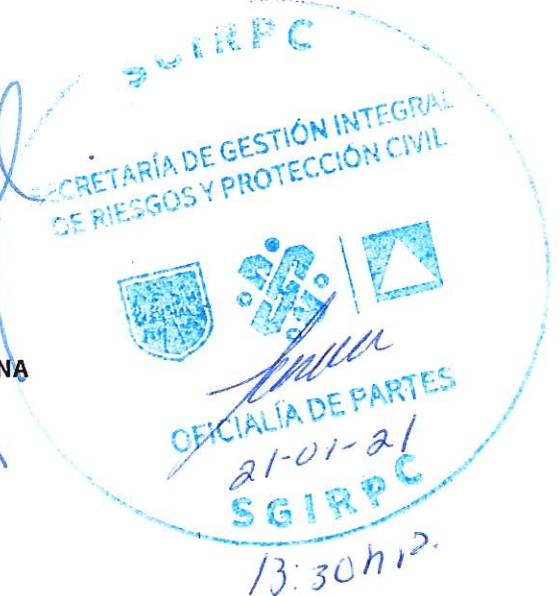 SGIRPC
SECRETARÍA DE GESTIÓN INTEGRAL
DE RIESGOS Y PROTECCIÓN CIVIL
NA
OFICIALÍA DE PARTES
21-01-21
SGIRPC
13:30 hrs.